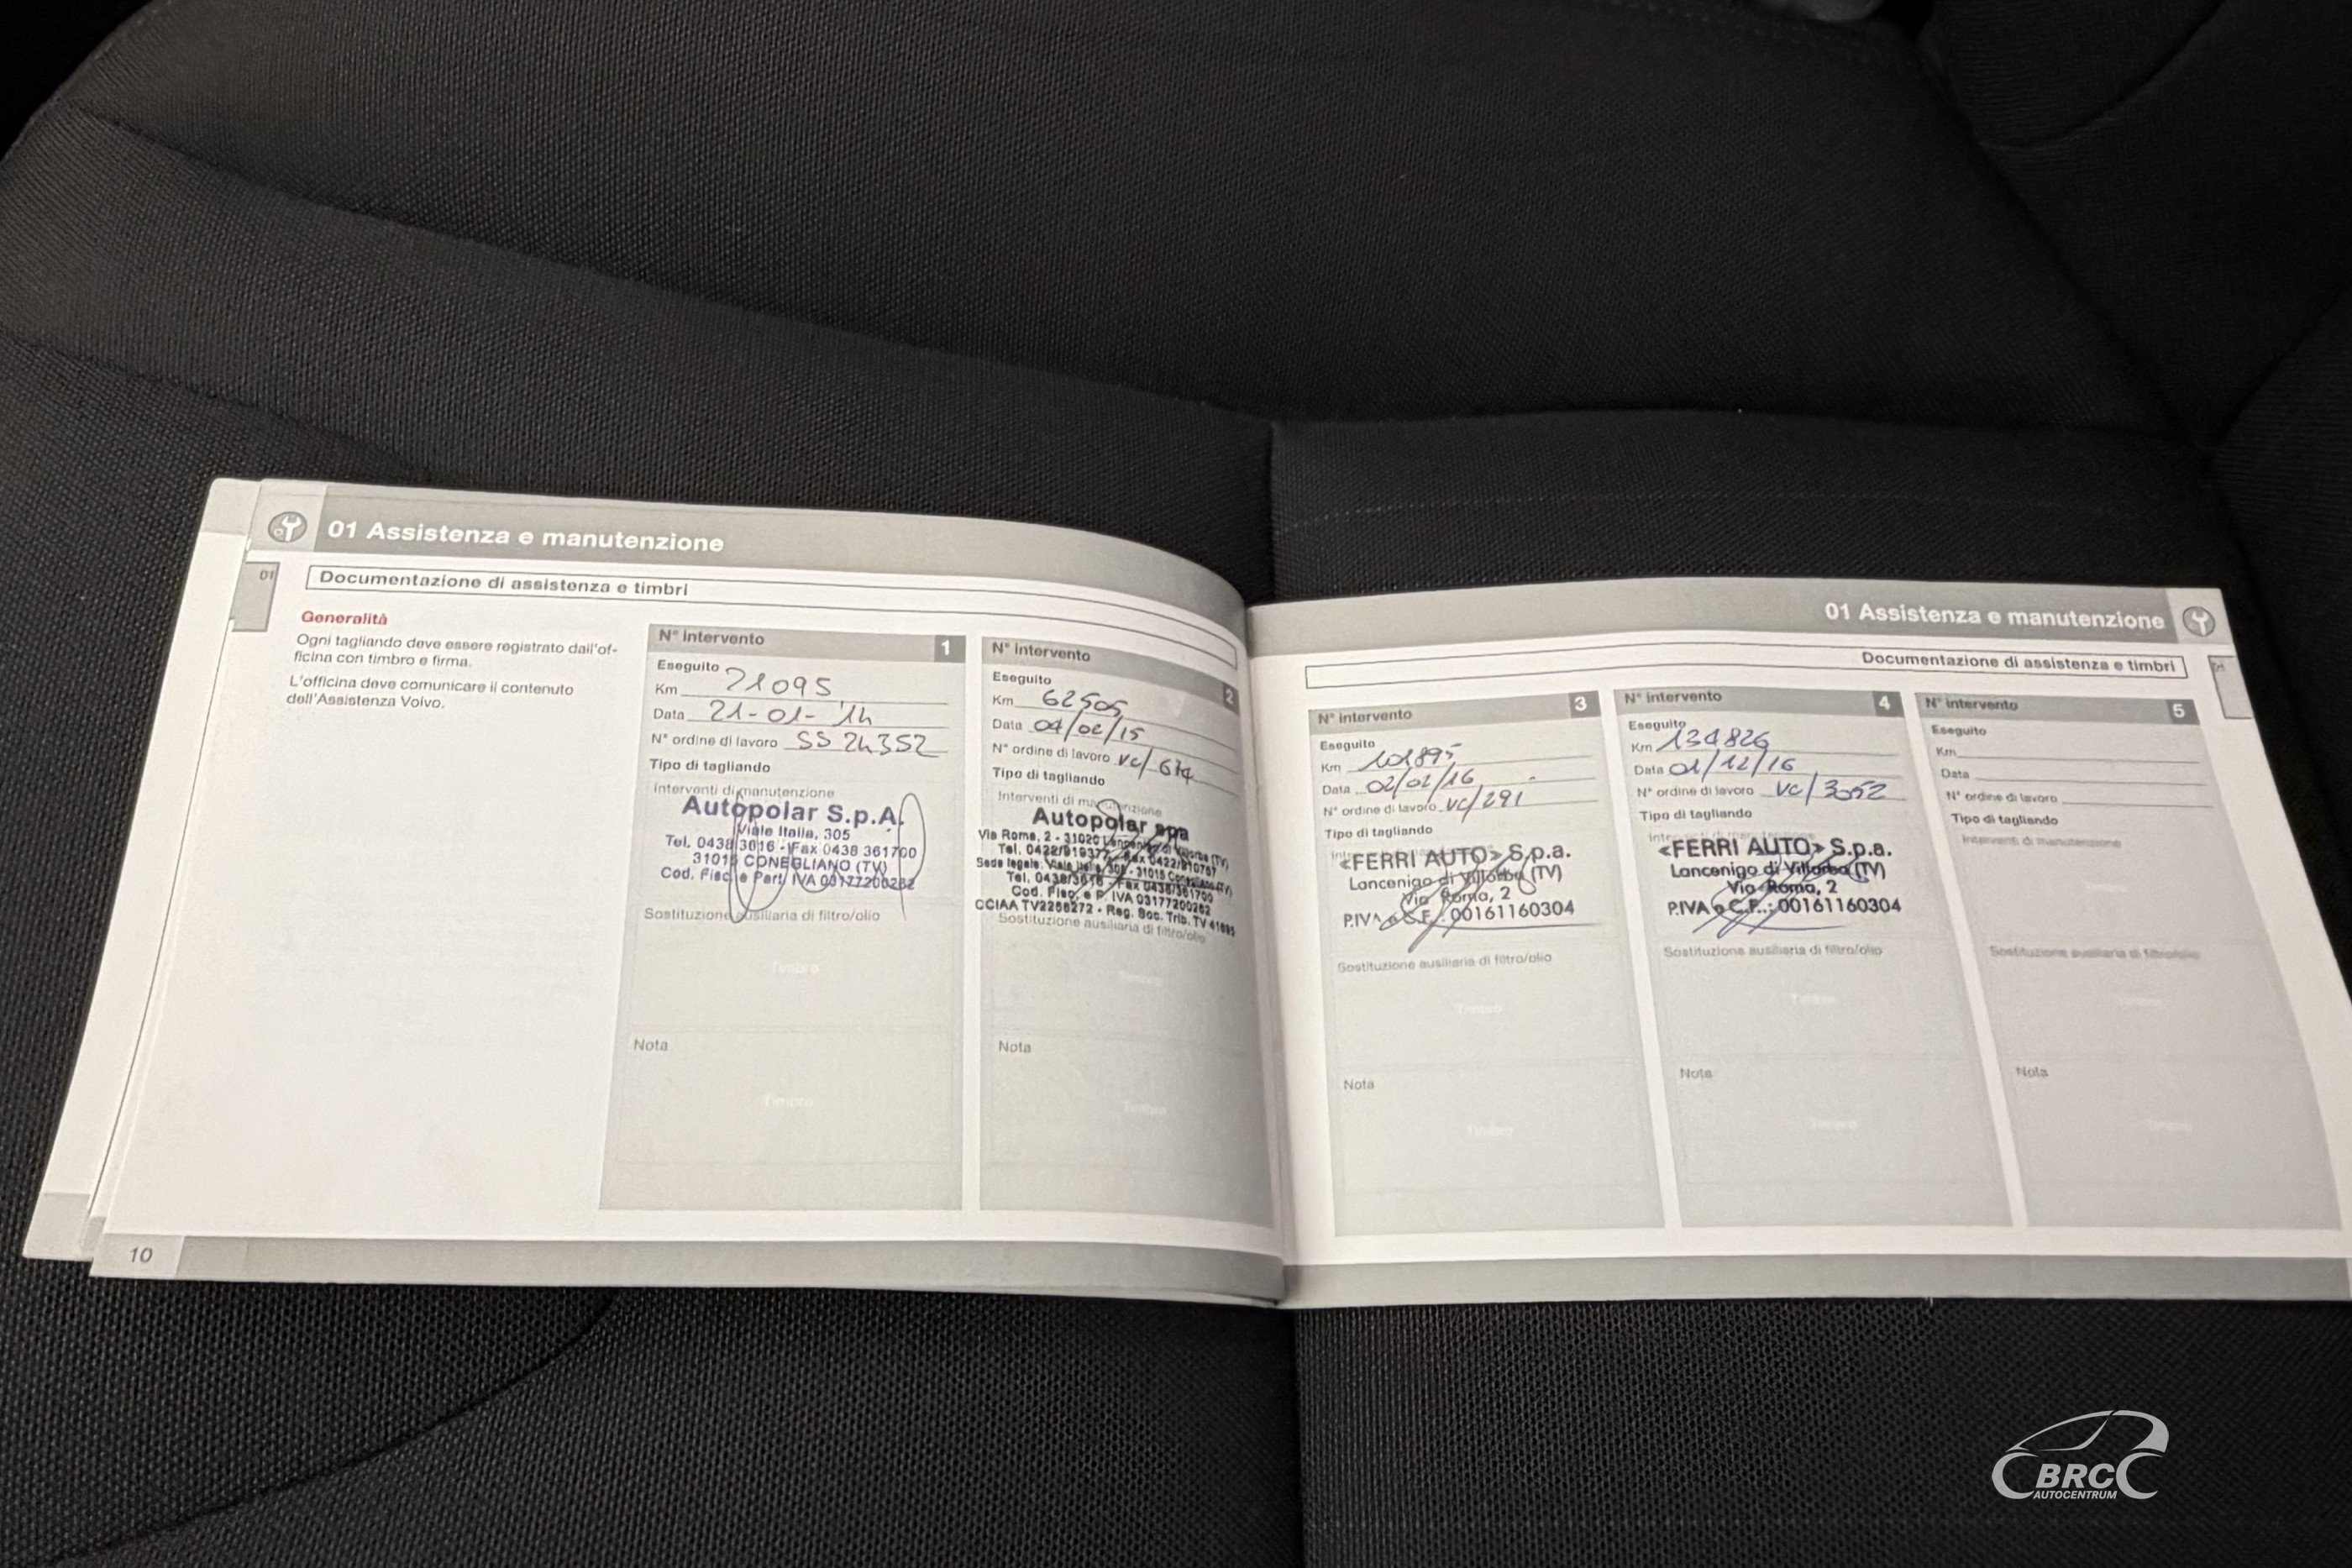 01 Assistenza e manutenzione
01
Documentazione di assistenza e timbri
Generalità
Ogni tagliando deve essere registrato dall'of-
ficina con timbro e firma.
L'officina deve comunicare il contenuto
dell'Assistenza Volvo.
N° intervento 1
Eseguito
Km 21095
Data 21-01-'14
N° ordine di lavoro SS 24352
Tipo di tagliando
Interventi di manutenzione
Autopolar S.p.A.
Viale Italia, 305
Tel. 0438 3616 - Fax 0438 361700
31015 CONEGLIANO (TV)
Cod. Fisc. e Part. IVA 03177200262
Sostituzione ausiliaria di filtro/olio
Timbro
Nota
Timbro
N° intervento 2
Eseguito
Km 62505
Data 04/02/15
N° ordine di lavoro VC/674
Tipo di tagliando
Interventi di manutenzione
Autopolar spa
Via Roma, 2 - 31020 Lancenigo di Villorba (TV)
Tel. 0422/919377 - Fax 0422/910767
Sede legale: Viale Italia, 305 - 31015 Conegliano (TV)
Tel. 0438/3616 - Fax 0438/361700
Cod. Fisc. e P. IVA 03177200262
CCIAA TV2258272 - Reg. Soc. Trib. TV 41695
Sostituzione ausiliaria di filtro/olio
Timbro
Nota
Timbro
10
01 Assistenza e manutenzione
Documentazione di assistenza e timbri
01
N° intervento 3
Eseguito
Km 101895
Data 02/02/16
N° ordine di lavoro VC/291
Tipo di tagliando
«FERRI AUTO» S.p.a.
Lancenigo di Villorba (TV)
Via Roma, 2
P.IVA e C.F.: 00161160304
Sostituzione ausiliaria di filtro/olio
Timbro
Nota
Timbro
N° intervento 4
Eseguito
Km 134826
Data 01/12/16
N° ordine di lavoro VC/3052
Tipo di tagliando
Interventi di manutenzione
«FERRI AUTO» S.p.a.
Lancenigo di Villorba (TV)
Via Roma, 2
P.IVA e C.F.: 00161160304
Sostituzione ausiliaria di filtro/olio
Timbro
Nota
Timbro
N° intervento 5
Eseguito
Km
Data
N° ordine di lavoro
Tipo di tagliando
Interventi di manutenzione
Timbro
Sostituzione ausiliaria di filtro/olio
Timbro
Nota
Timbro
BRC
AUTOCENTRUM